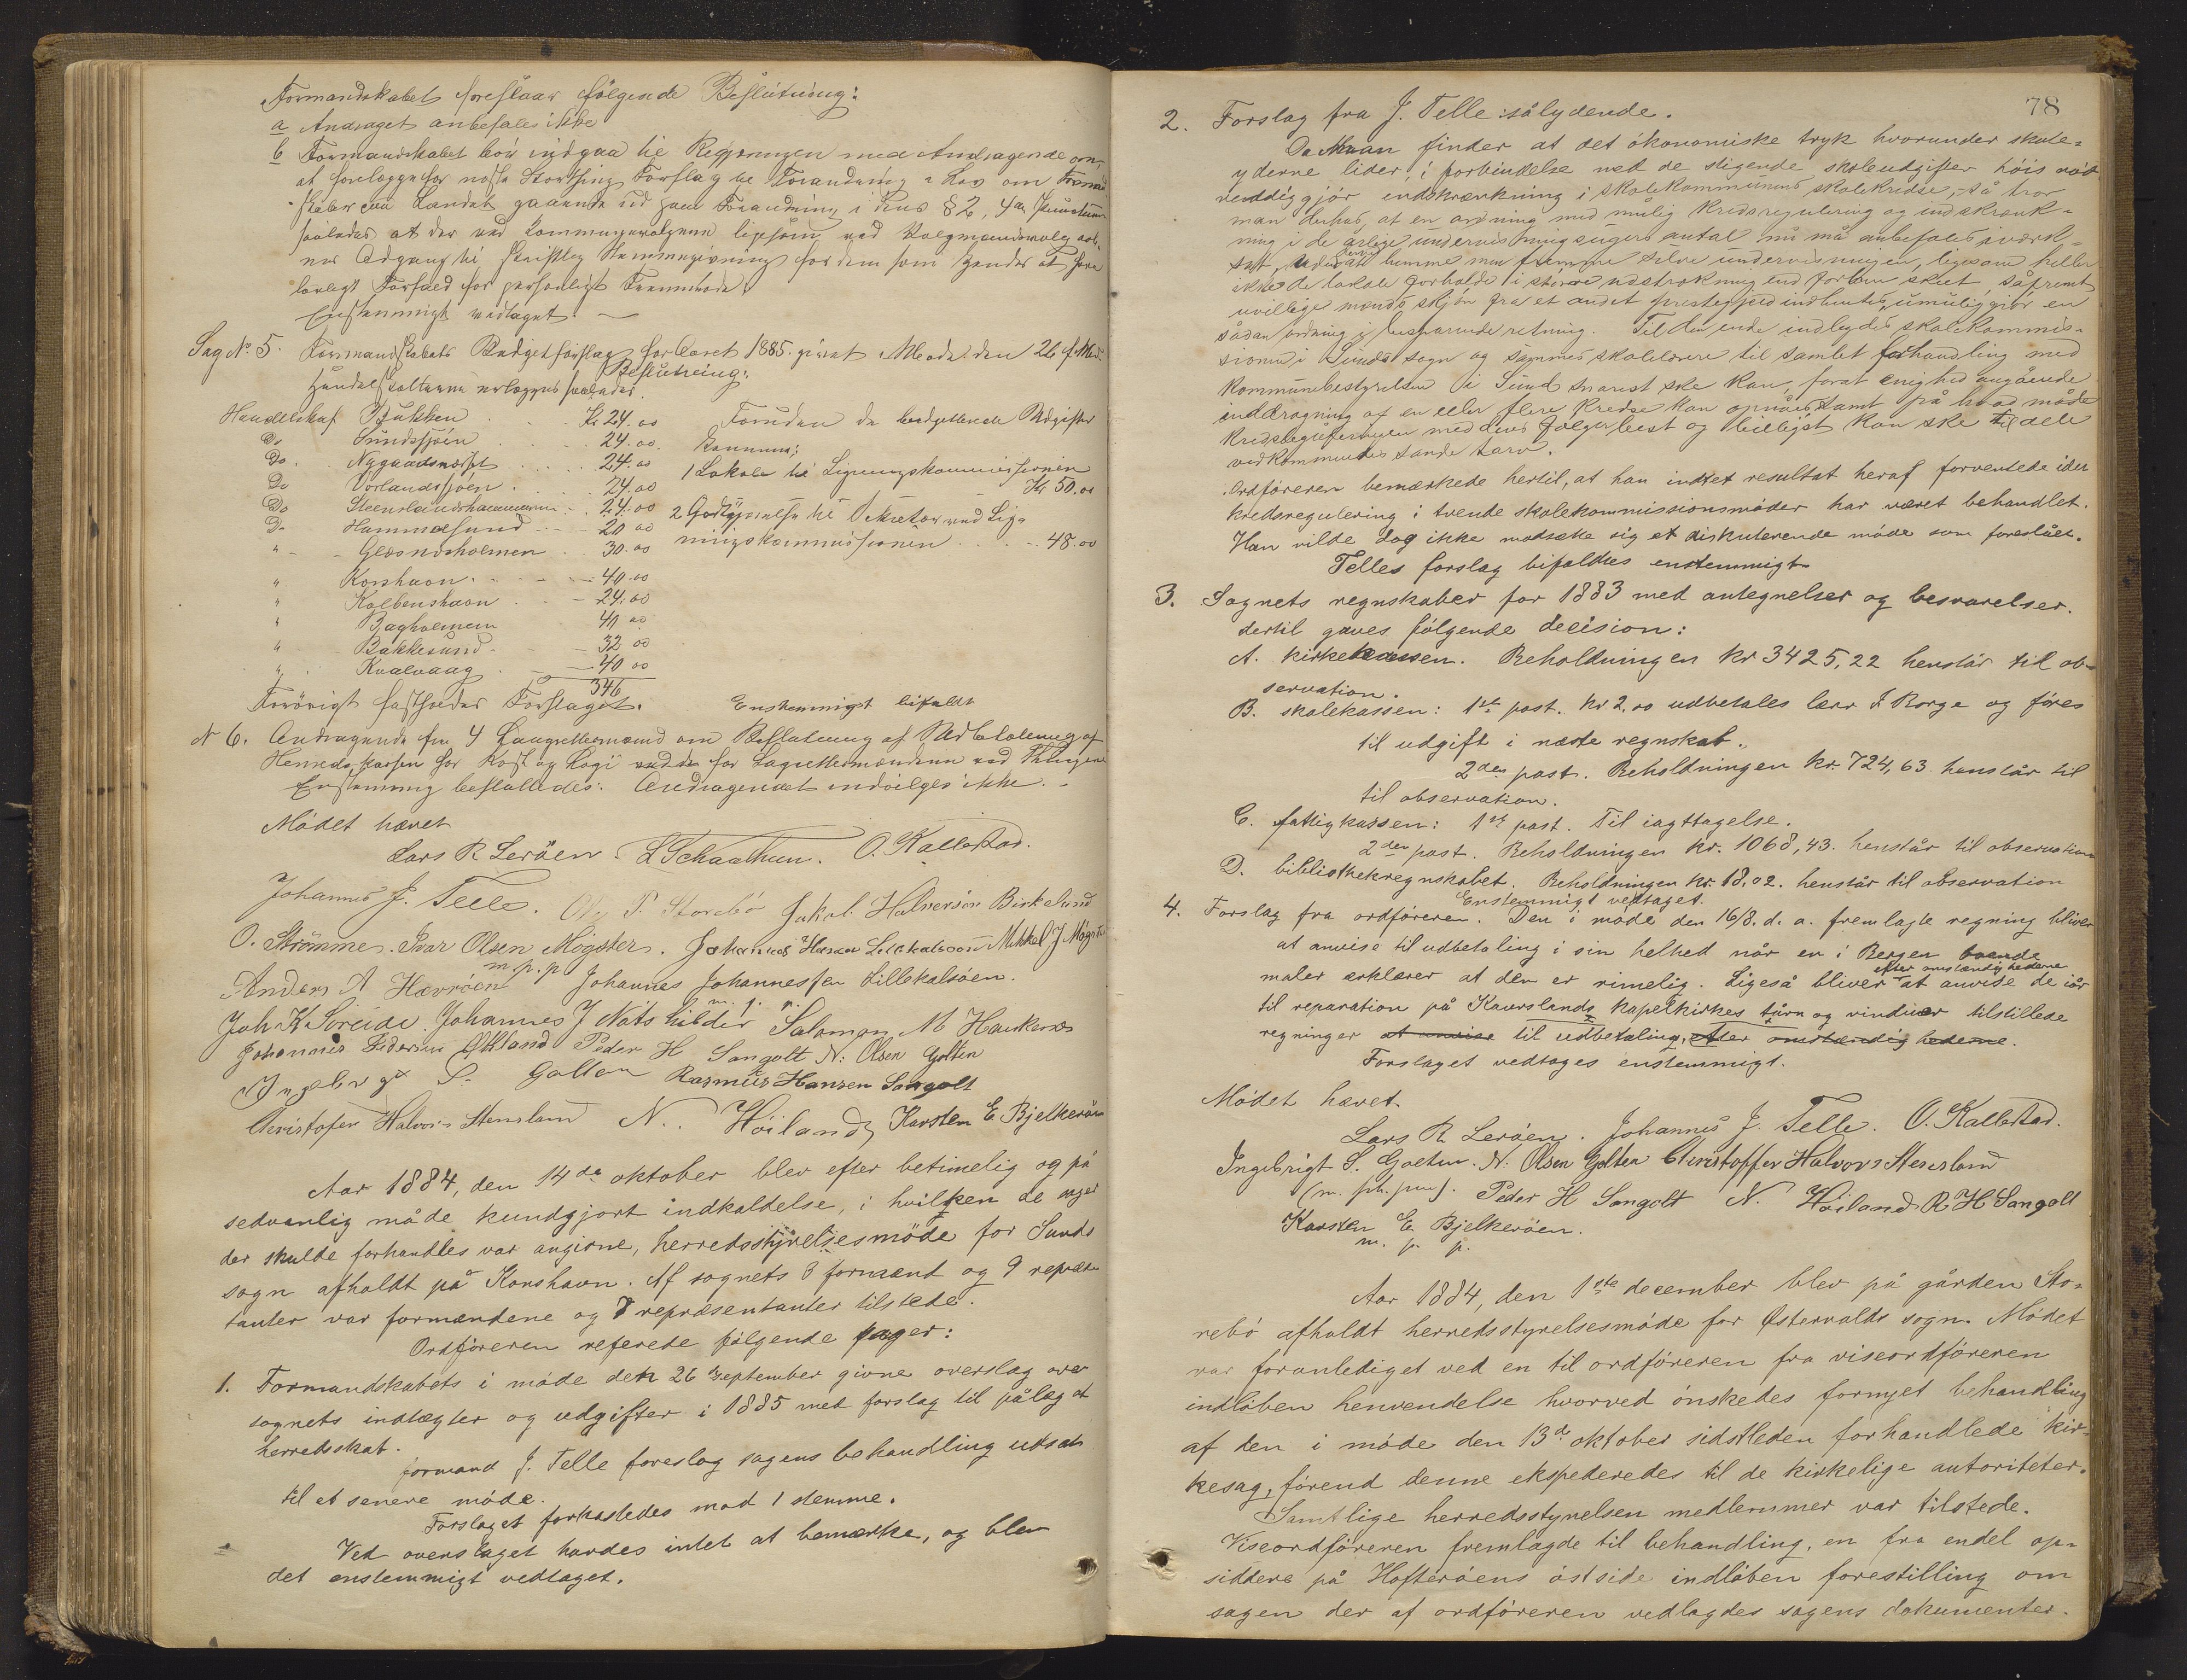 Formandskabet foreslaar følgende Beslutning:
a Andraget anbefales ikke
b Formandskabet bør indgaa til Regjeringen med Andragende om
at forelægge for næste Storthing Forslag til Forandring i Lov om Formand-
skaber paa Landet gaaende ud paa Forandring i dens § 2, 4de Punctum
saaledes at der ved Kommunevalgene ligesom ved Valgmandsvalg aab-
nes Adgang til skriftlig Stemmegivning for dem som hindres af
lovligt Forfald for personligt Fremmøde.
Enstemmigt vedtaget. —
Sag No. 5. Formandskabets Budgetforslag for Aaret 1885 givet i Møde den 26 f. Md.
Beslutning:
Handelskatterne erlægges saaledes.
Handelskaf Bukken Kr 24.00 Foruden de budgetterede Udgifter
Do Sundssjøen 24.00 kommer:
Do Nygaardsnæsset 24.00 1 Lokale til Ligningskommissionen
Do Vorlandssjøen 24.00 Kr 50.00
Do Steenslandshammeren 24.00 2 Godtgjørelse til Sekretær ved Lig-
Do Hammersund 20 00 ningskommissionen 48.00
" Glesnesholmen 30.00
" Korshavn 40.00
" Kalbenshavn 24.00
" Bagholmen 40 00
" Bakkesund 32 00
" Kvalvaag 40 00
346
Forøvrigt fastholdes Forslaget. Enstemmigt bifaldt
N 6. Andragende fra 4 Laugrettesmænd om Beslutning af Udbetaling af
Herredskassen for Kost og Logi for Lagrettesmændene ved Thingene
Enstemmig besluttedes: Andragendet indvilges ikke. -
Mödet hævet
Lars R Leröen. L Schaathun. O. Kallestad.
Johannes J. Telle. Ole P. Storebö Jakob Halversön Birkelund
O. Strömme. Ivar Olsen Mögster. Johannes Hansen Mikkel J Mögster
Anders A Hevröen m. p. p. Johannes Johannessen Lillekalsöen.
Joh K Soreide. Johannes J Nøtshilder m. p. p. Salamon M Haukenes
Johannes Pedersen Økland Peder H Sangolt N: Olsen Golten
Ingebrigt S. Golten Rasmus Hansen Sangolt
Christofer Halvors Stensland N. Höiland, Karsten E. Bjelkeröen
Aar 1884, den 14de oktober blev efter betimelig og på
sedvanlig måde kundgjort indkaldelse, i hvilken de sager
der skulde forhandles var angivne, herredsstyrelsesmöde for Sunds
sogn afholdt på Korshavn. Af sognets 3 formænd og 9 repræsen-
tanter var formændene og 8 repræsentanter tilstede.
Ordföreren referede fölgende sager:
1. Formandskabets i möde den 26 september givne overslag over
sognets indtægter og udgifter i 1885 med forslag til pålæg af
herredsskat.
formand J. Telle foreslog sagens behandling udsat
til et senere möde.
Forslaget forkastedes mod 1 stemme.
Ved overslaget havdes intet at bemærke, og blev
det enstemmigt vedtaget.
78
2. Forslag fra J. Telle sålydende.
Da Man finder at det ökonomiske tryk hvorunder skole-
yderne lider, i forbindelse med de stigende skoleudgifter höis nöd-
vendiggjör indskrænkning i skolekommunens skolekredse, så tror
man derhos, at en ordning med mulig kredsregulering og indskrænk-
ning i de årlige undervisningsugers antal nu må anbefales iværk-
sat, uden at hemme men fremme selve undervisningen, ligesom heller
ikke de lokale forholde i större udstrækning end forhen skeet, såfremt
uvillige mænds skjön fra et andet prestegjeld indhentes, umuliggjör en
sådan ordning i besparende retning. Til den ende indbydes skolekommis-
sionen i Sunds sogn og sammes skolelærere til samlet forhandling med
kommunebestyrelsen i Sund snarest ske kan, forat enighed angående
inddragning af en eller flere kredse kan opnåes samt på hvad måde
kredsreguleringen med dens fölger best og billigst kan ske til alle
vedkommendes sande tarv.
Ordföreren bemærkede hertil, at han intet resultat heraf forventede iden
kredsregulering i tvende skolekommissionsmöder har været behandlet.
Han vilde dog ikke modsætte sig et diskuterende möde som foreslået.
Telles forslag bifaldtes enstemmigt
3. Sognets regnskaber for 1883 med antegnelser og besvarelser.
dertil gaves fölgende decision:
A. kirkekassen. Beholdningen kr 3425,22 henstår til ob-
servation.
B. skolekassen: 1ste post. kr 2,00 udbetales lærer J Borge og föres
til udgift i næste regnskab.
2den post. Beholdningen kr. 724,63 henstår til
til observation.
C. fattigkassen: 1ste post. Til iagttagelse.
2den post. Beholdningen kr. 1068,43. henstår til observation
D. bibliothekregnskabet. Beholdningen kr. 18,02. henstår til observation
Enstemmigt vedtaget.
4. Forslag fra ordföreren. Den i möde den 16/8. d. a. fremlagte regning bliver
at anvise til udbetaling i sin helhed når en i Bergen boende
maler erklærer at den er rimelig. Ligeså bliver efter omstændighederne at anvise de iår
til reparation på Kaurslands kapelkirkes tårn og vinduer tilstillede
regninger at anvise til udbetaling, efter omstændighederne.
Forslaget vedtages enstemmigt.
Mödet hævet.
Lars R Leröen. Johannes J. Telle. O. Kallestad.
Ingebrigt S. Golten. N: Olsen Golten Christoffer Halvors Stensland
(m. på. pen). Peder H Sangolt N. Höiland R H Sangolt
Karsten E. Bjelkeröen.
m. p. p.
Aar 1884, den 1ste december blev på gården Sto-
rebö afholdt herredsstyrelsesmöde for Østervolds sogn. Mödet
var foranlediget ved en til ordföreren fra viseordföreren
indlöben henvendelse hvorved önskedes fornyet behandling
af den i möde den 13de oktober sidstleden forhandlede kir-
kesag, förend denne ekspederedes til de kirkelige autoriteter.
Samtlige herredsstyrelsen medlemmer var tilstede.
Viseordföreren fremlagde til behandling, en fra endel op-
siddere på Hofteröens östside indlöben forestilling om
sagen der af ordföreren vedlagdes sagens dokumenter.